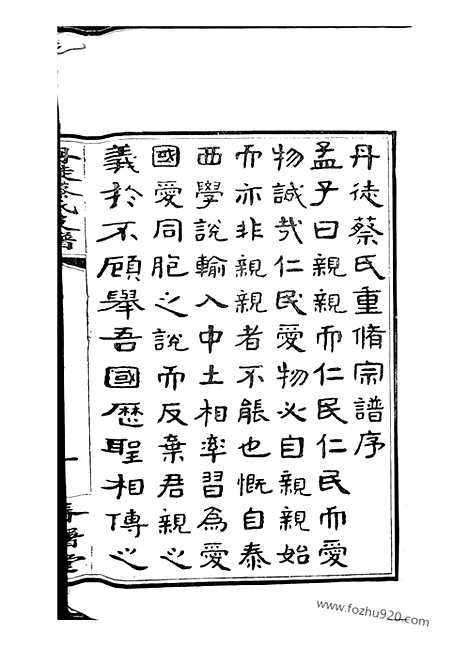 丹徒蔡氏重脩宗譜序
孟子曰親親而仁民仁民而愛
物誠哉仁民愛物必自親親始
而亦非親親者不能也慨自泰
西學說輸入中土相率習為愛
國愛同胞之說而反棄君親之
義於不顧舉吾國歷聖相傳之
丹徒蔡氏支譜
一
www.fozhu920.com